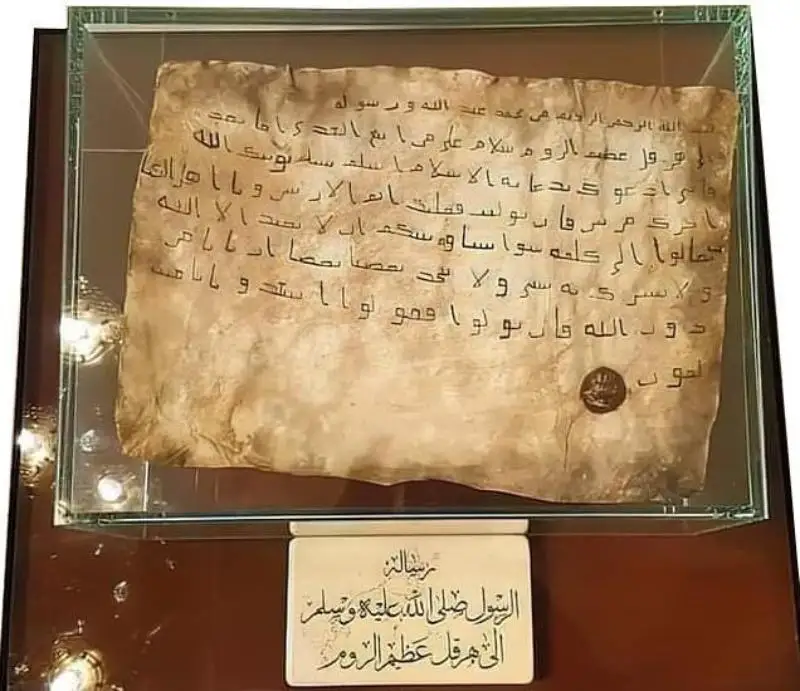 بسم الله الرحمن الرحيم من محمد عبد الله ورسوله
الى هرقل عظيم الروم سلام على من اتبع الهدى اما بعد
فاني ادعوك بدعاية الاسلام اسلم تسلم يوتك الله
اجرك مرتين فان توليت فعليك اثم الاريسين ويا اهل الكتا
تعالوا الى كلمة سوا بيننا وبينكم ان لا نعبد الا الله
ولا نشرك به شي ولا يتخذ بعضنا بعضا اربابا من
دون الله فان تولوا فقولوا اشهدوا بانا مسـ
لمون
رسالة
الرسول صلى الله عليه وسلم
الى هرقل عظيم الروم